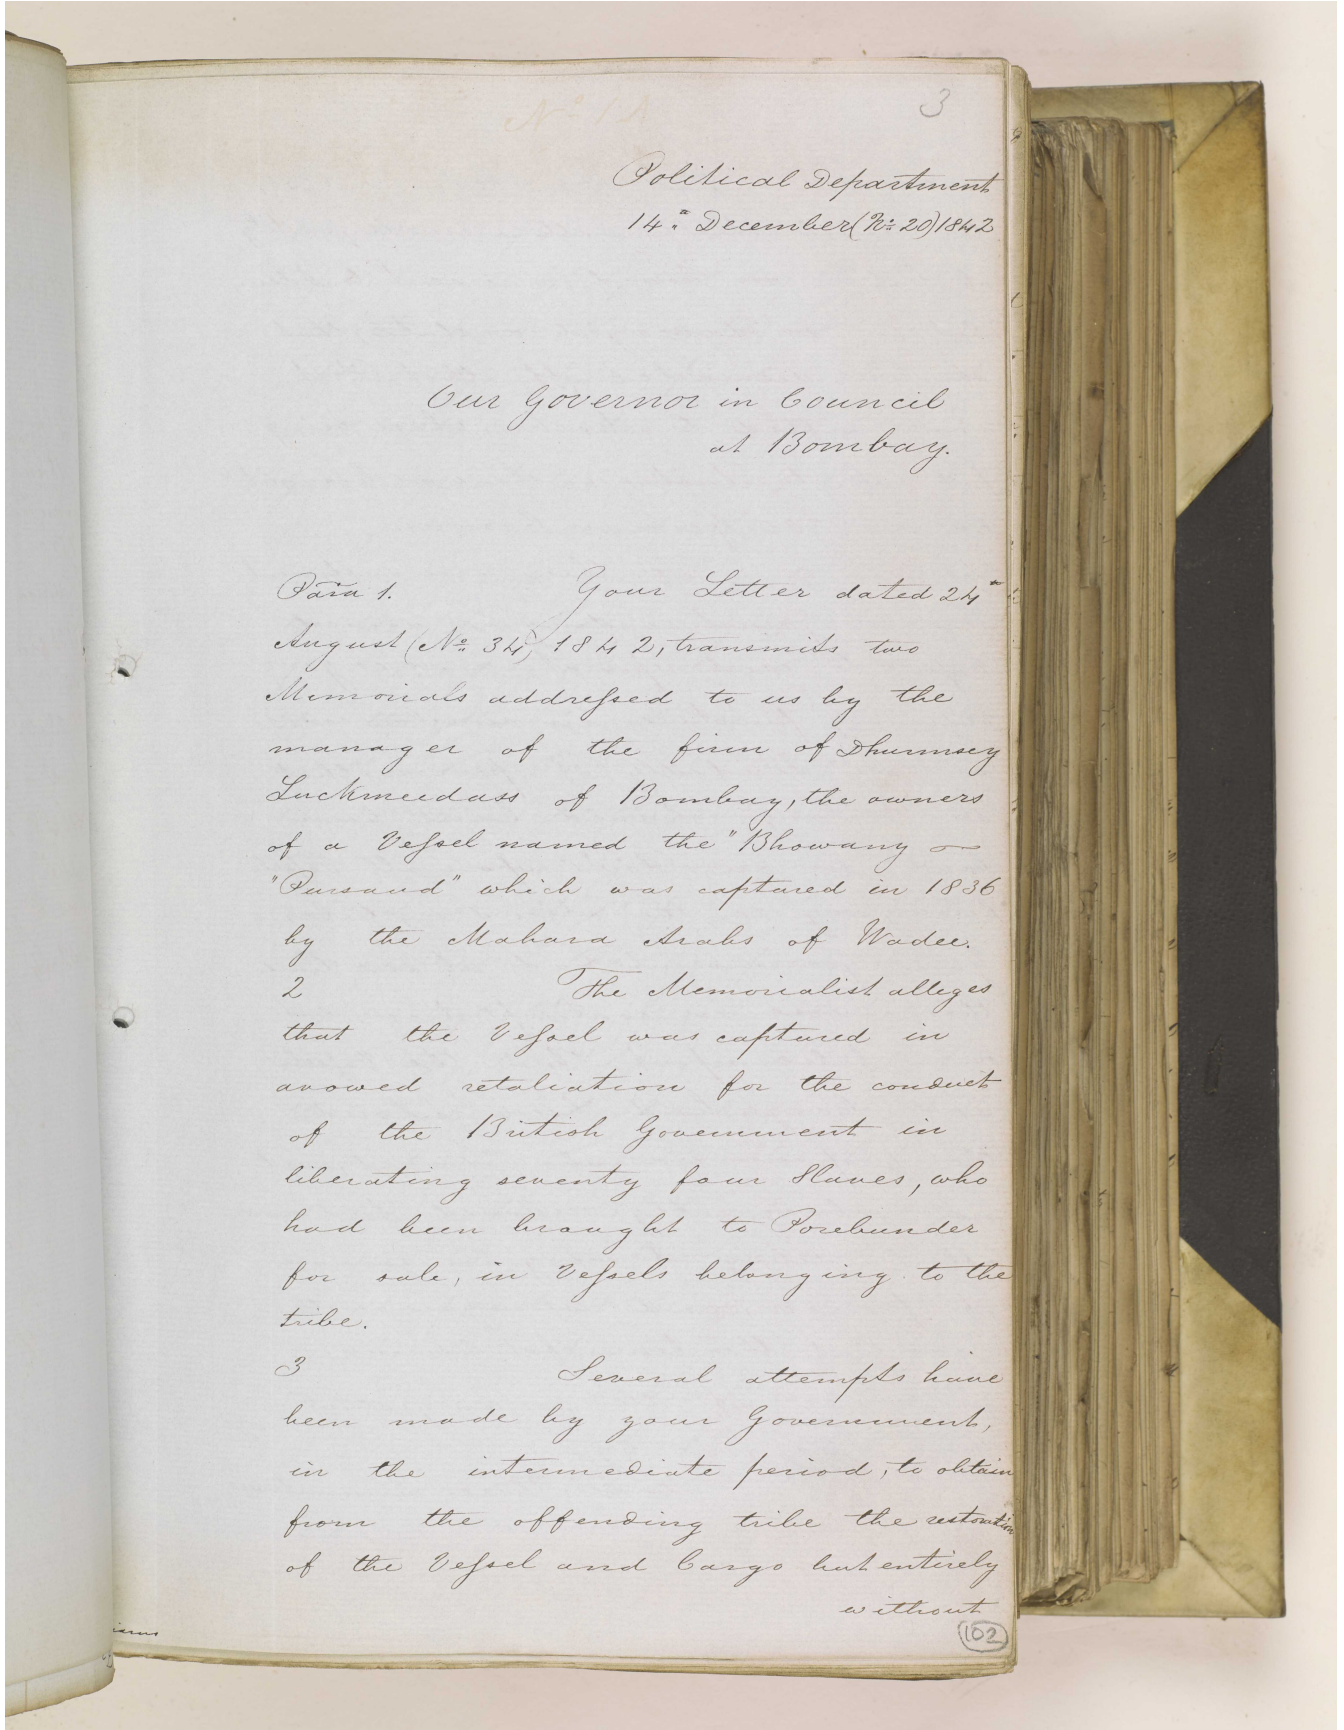 3
Nº 1A
Political Department
14th December (Nº 20) 1842
Our Governor in Council
at Bombay.
Para 1. Your Letter dated 24th
August (Nº 34) 1842, transmits two
Memorials addressed to us by the
manager of the firm of Dhurmsey
Luckmeedass of Bombay, the owners
of a Vessel named the "Bhowany
"Pursaud" which was captured in 1836
by the Mahara Arabs of Wadee.
2 The Memorialist alleges
that the Vessel was captured in
avowed retaliation for the conduct
of the British Government in
liberating seventy four Slaves, who
had been brought to Porebunder
for sale, in Vessels belonging to the
tribe.
3 Several attempts have
been made by your Government,
in the intermediate period, to obtain
from the offending tribe the restoration
of the Vessel and Cargo but entirely
without
102